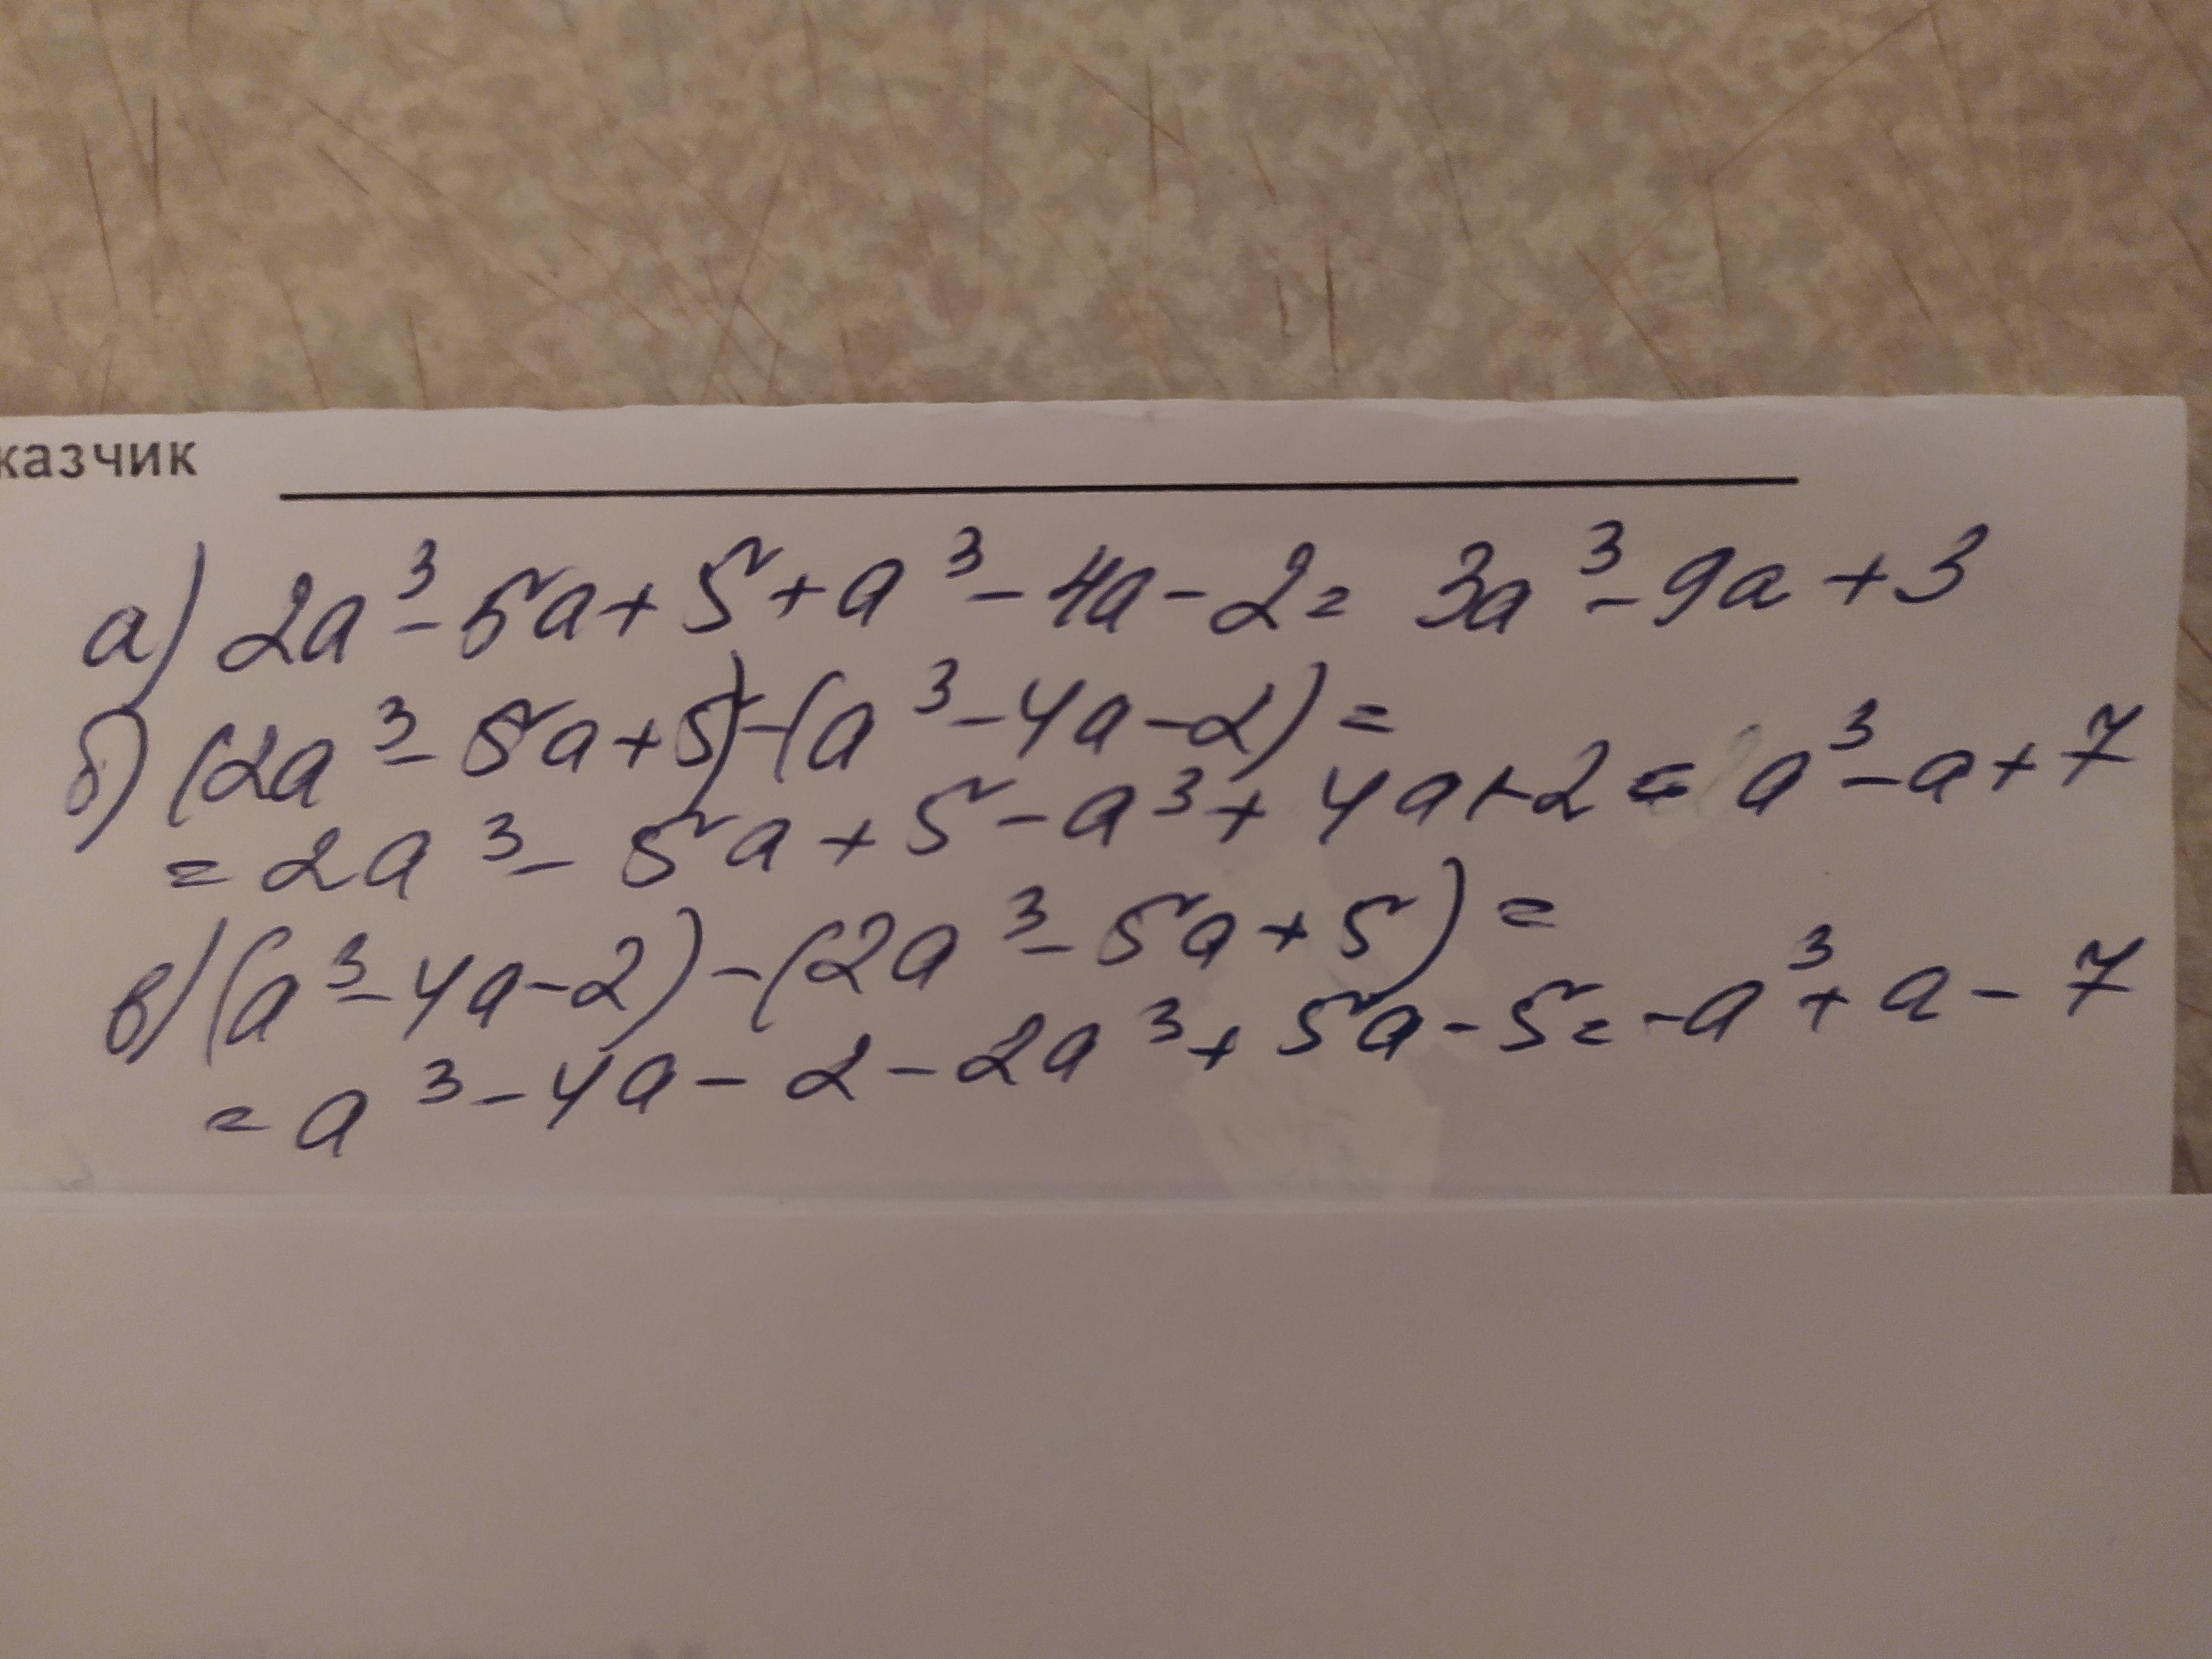 казчик
а) 2a³ - 5a + 5 + a³ - 4a - 2 = 3a³ - 9a + 3
б) (2a³ - 5a + 5) - (a³ - 4a - 2) =
= 2a³ - 5a + 5 - a³ + 4a + 2 = a³ - a + 7
в) (a³ - 4a - 2) - (2a³ - 5a + 5) =
= a³ - 4a - 2 - 2a³ + 5a - 5 = -a³ + a - 7